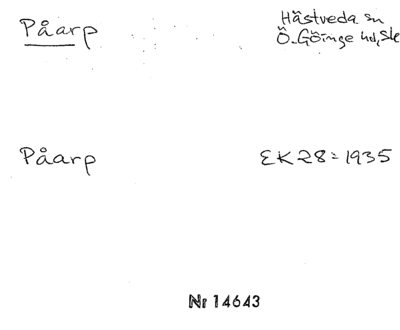 Påarp
Hästveda sn
Ö. Göinge hd, Sk
Påarp
EK 28 = 1935
Nr 14643